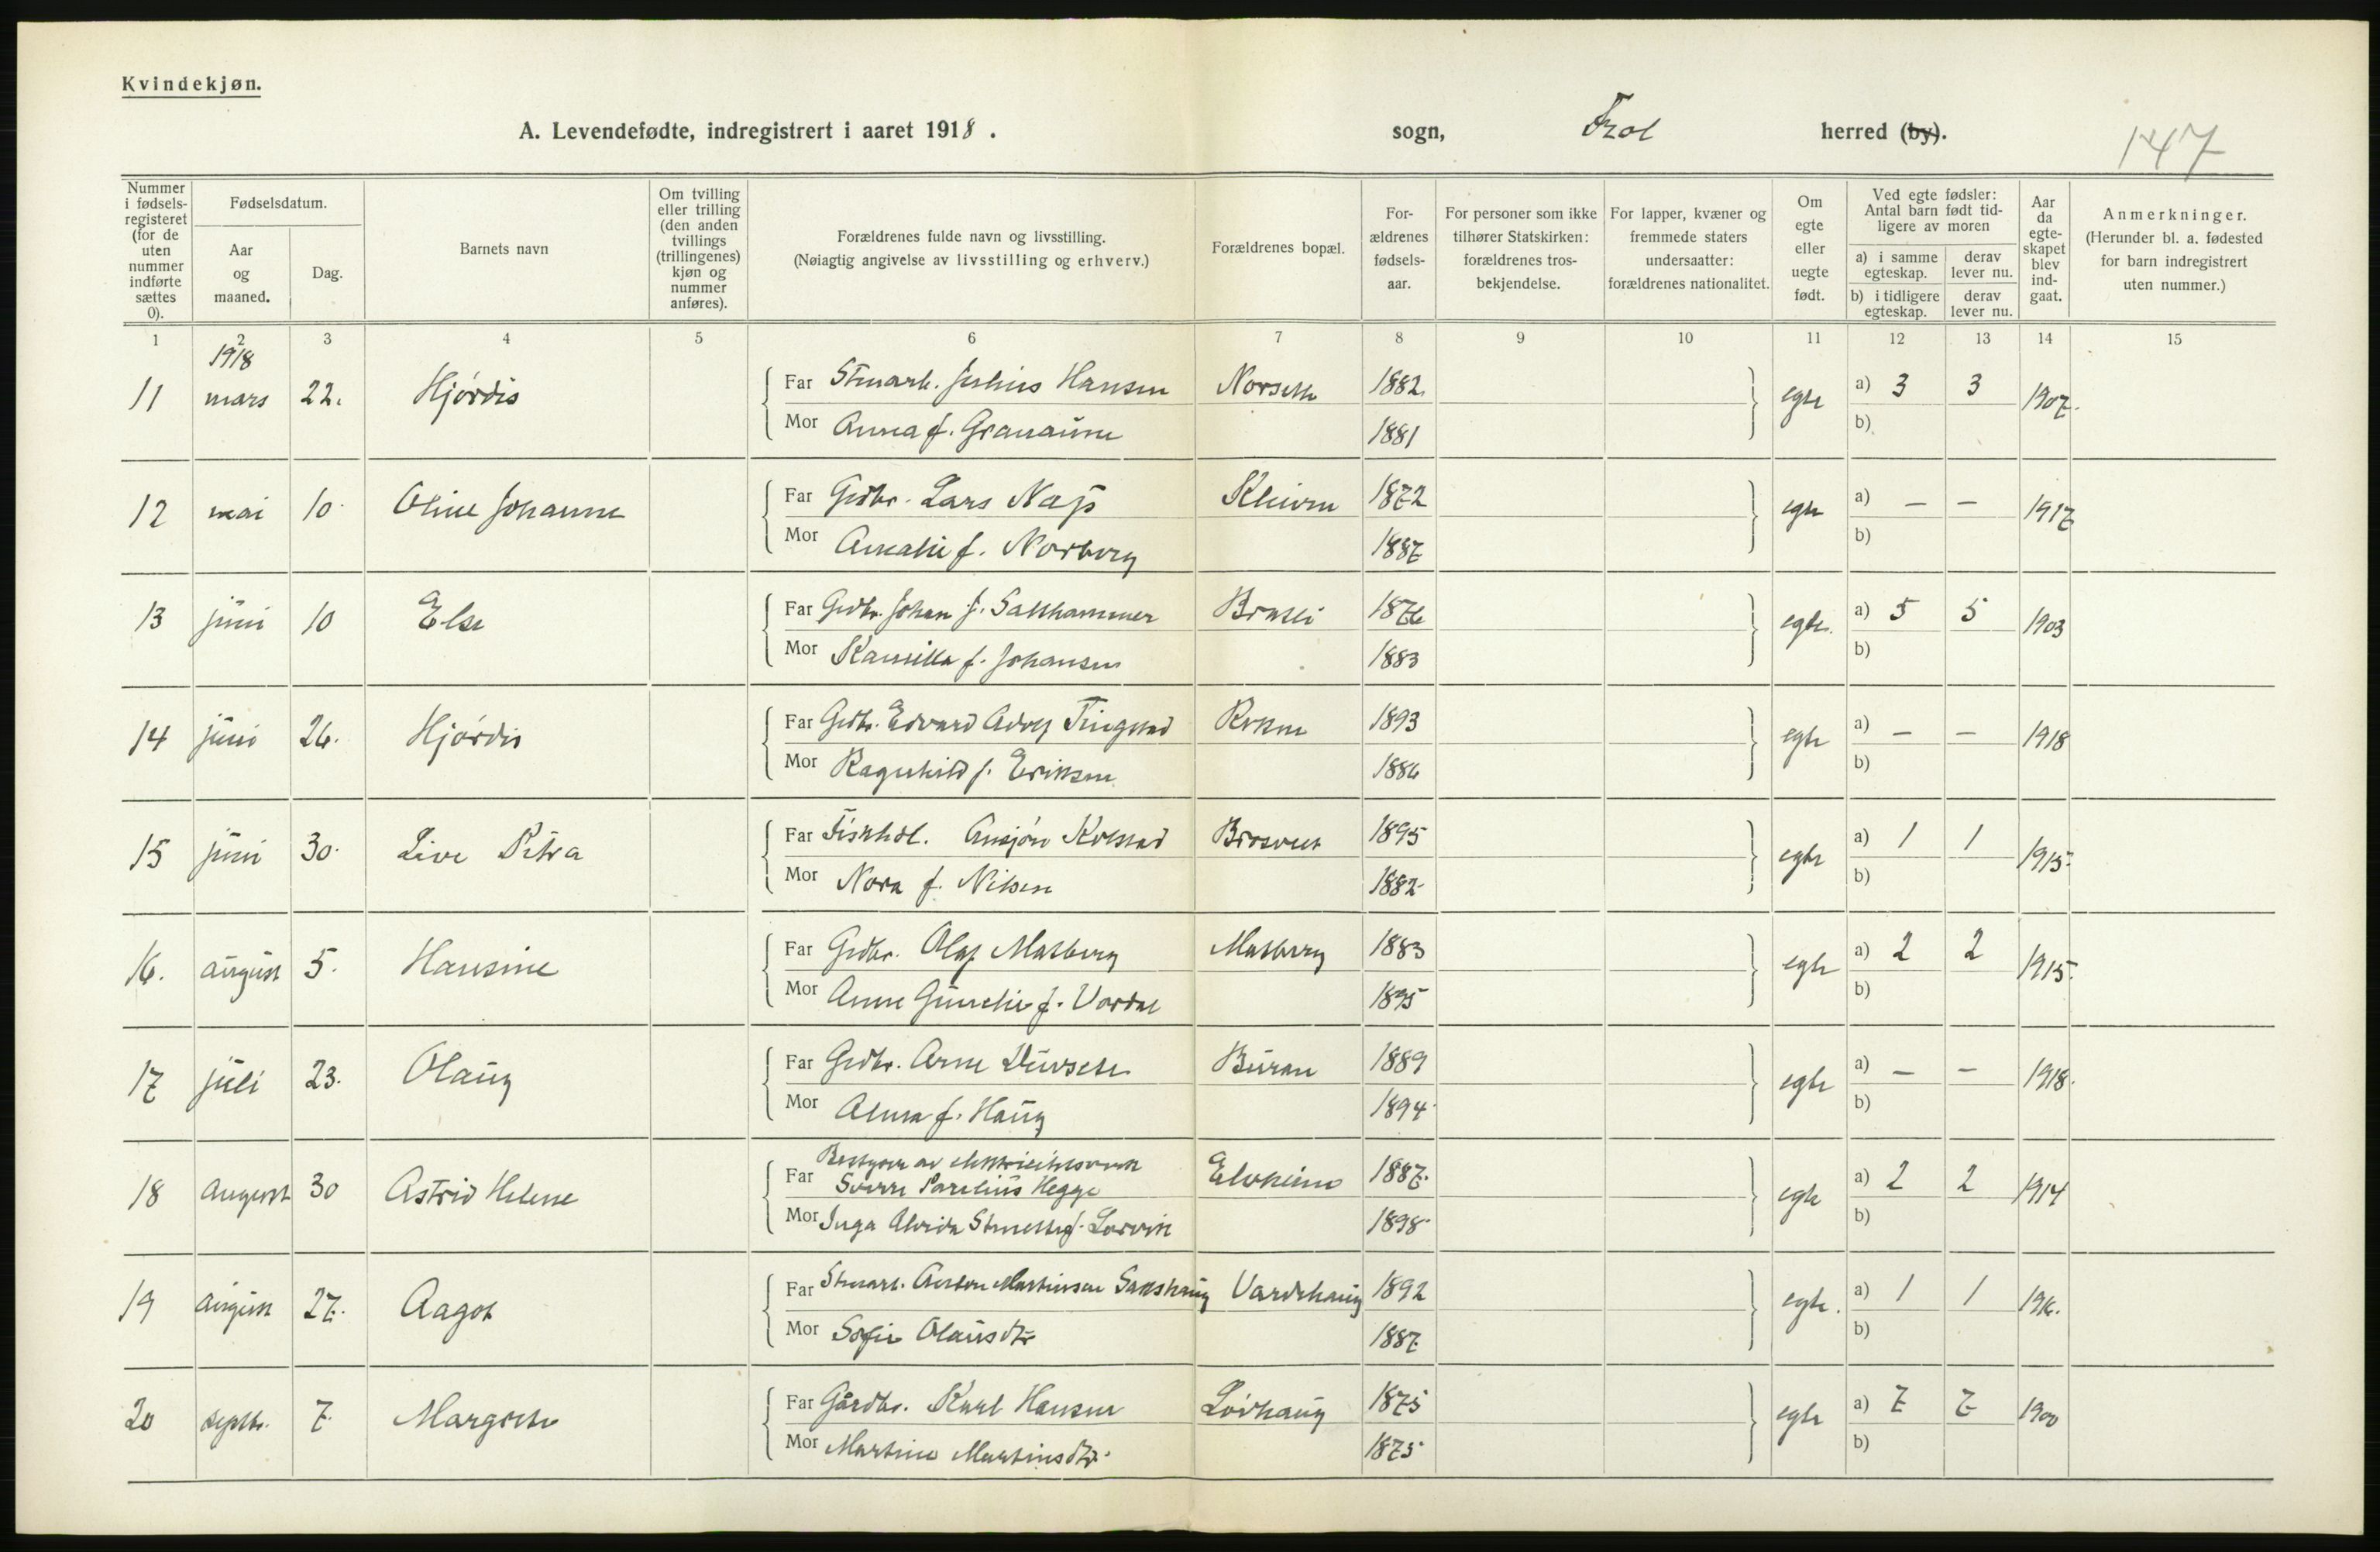 Kvindekjøn.
A. Levendefødte, indregistrert i aaret 1918. sogn, Frol herred (by).
147
Nummer i fødsels-registeret (for de uten nummer indførte sættes 0).
Fødselsdatum.
Aar og maaned.
Dag.
Barnets navn
Om tvilling eller trilling (den anden tvillings (trillingenes) kjøn og nummer anføres).
Forældrenes fulde navn og livsstilling.
(Nøiagtig angivelse av livsstilling og erhverv.)
Forældrenes bopæl.
For-ældrenes fødsels-aar.
For personer som ikke tilhører Statskirken: forældrenes tros-bekjendelse.
For lapper, kvæner og fremmede staters undersaatter: forældrenes nationalitet.
Om egte eller uegte født.
Ved egte fødsler: Antal barn født tid-ligere av moren
a) i samme egteskap.
derav lever nu.
b) i tidligere egteskap.
derav lever nu.
Aar da egte-skapet blev ind-gaat.
Anmerkninger.
(Herunder bl. a. fødested for barn indregistrert uten nummer.)
1 2 3 4 5 6 7 8 9 10 11 12 13 14 15
1918
11 mars 22. Hjórdis Far Stenarb. Julius Hansen 1882 egte a) 3 3 1907.
Mor Anna f. Granaune 1881 b)
12 mai 10. Oline Johanne Far Grdbr. Lars Nap Kleiven 1872 egte a) — — 1917
Mor Amalie f. Norberg 1887 b)
13 juni 10 Else Far Grdbr. Johan J. Salthammer 1876 egte. a) 5 5 1903
Mor Kamilla f. Johansen 1883 b)
14 juni 26. Hjórdis Far Grdbr. Edvard Adolf Tingstad 1893 egte a) — — 1918
Mor Ragnhild f. Eriksen 1886 b)
15 juni 30. Live Petra Far Fiskhdl. Ansjón Kolstad 1895 egte a) 1 1 1915.
Mor Nora f. Nilsen 1882 b)
16. august 5. Hansine Far Grdbr. Olaf Matberg Matberg 1883 egte a) 2 2 1915.
Mor Anne Gunelie f. Vordal 1895 b)
17 juli 23. Olaug Far Grdbr. Arne Buran 1889 egte a) — — 1918.
Mor Alma f. Haug 1894 b)
18 august 30 Astrid Helene Far Bestyrer av elektricitetsverk
Sverre Parelius Hegge Elvheim 1887. egte a) 2 2 1914
Mor Inga Alvida f. Lorvik 1898 b)
19 august 27. Aagot Far Stenarb. Anton Martinsen Sakshaug Vardehaug 1892 egte. a) 1 1 1916.
Mor Sofie Olausdtr 1887 b)
20 septbr. 7. Margrete Far Gårdbr. Karl Hansen Lóvhaug 1875 egte a) 7 7 1900
Mor Martine Martinsdtr. 1875 b)